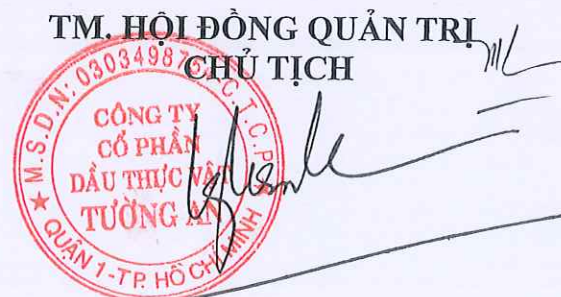 TM. HỘI ĐỒNG QUẢN TRỊ
CHỦ TỊCH
M.S.D.N: 030349876
C.T.C.P
CÔNG TY
CỔ PHẦN
DẦU THỰC VẬT
TƯỜNG AN
QUẬN 1-TP. HỒ CHÍ MINH